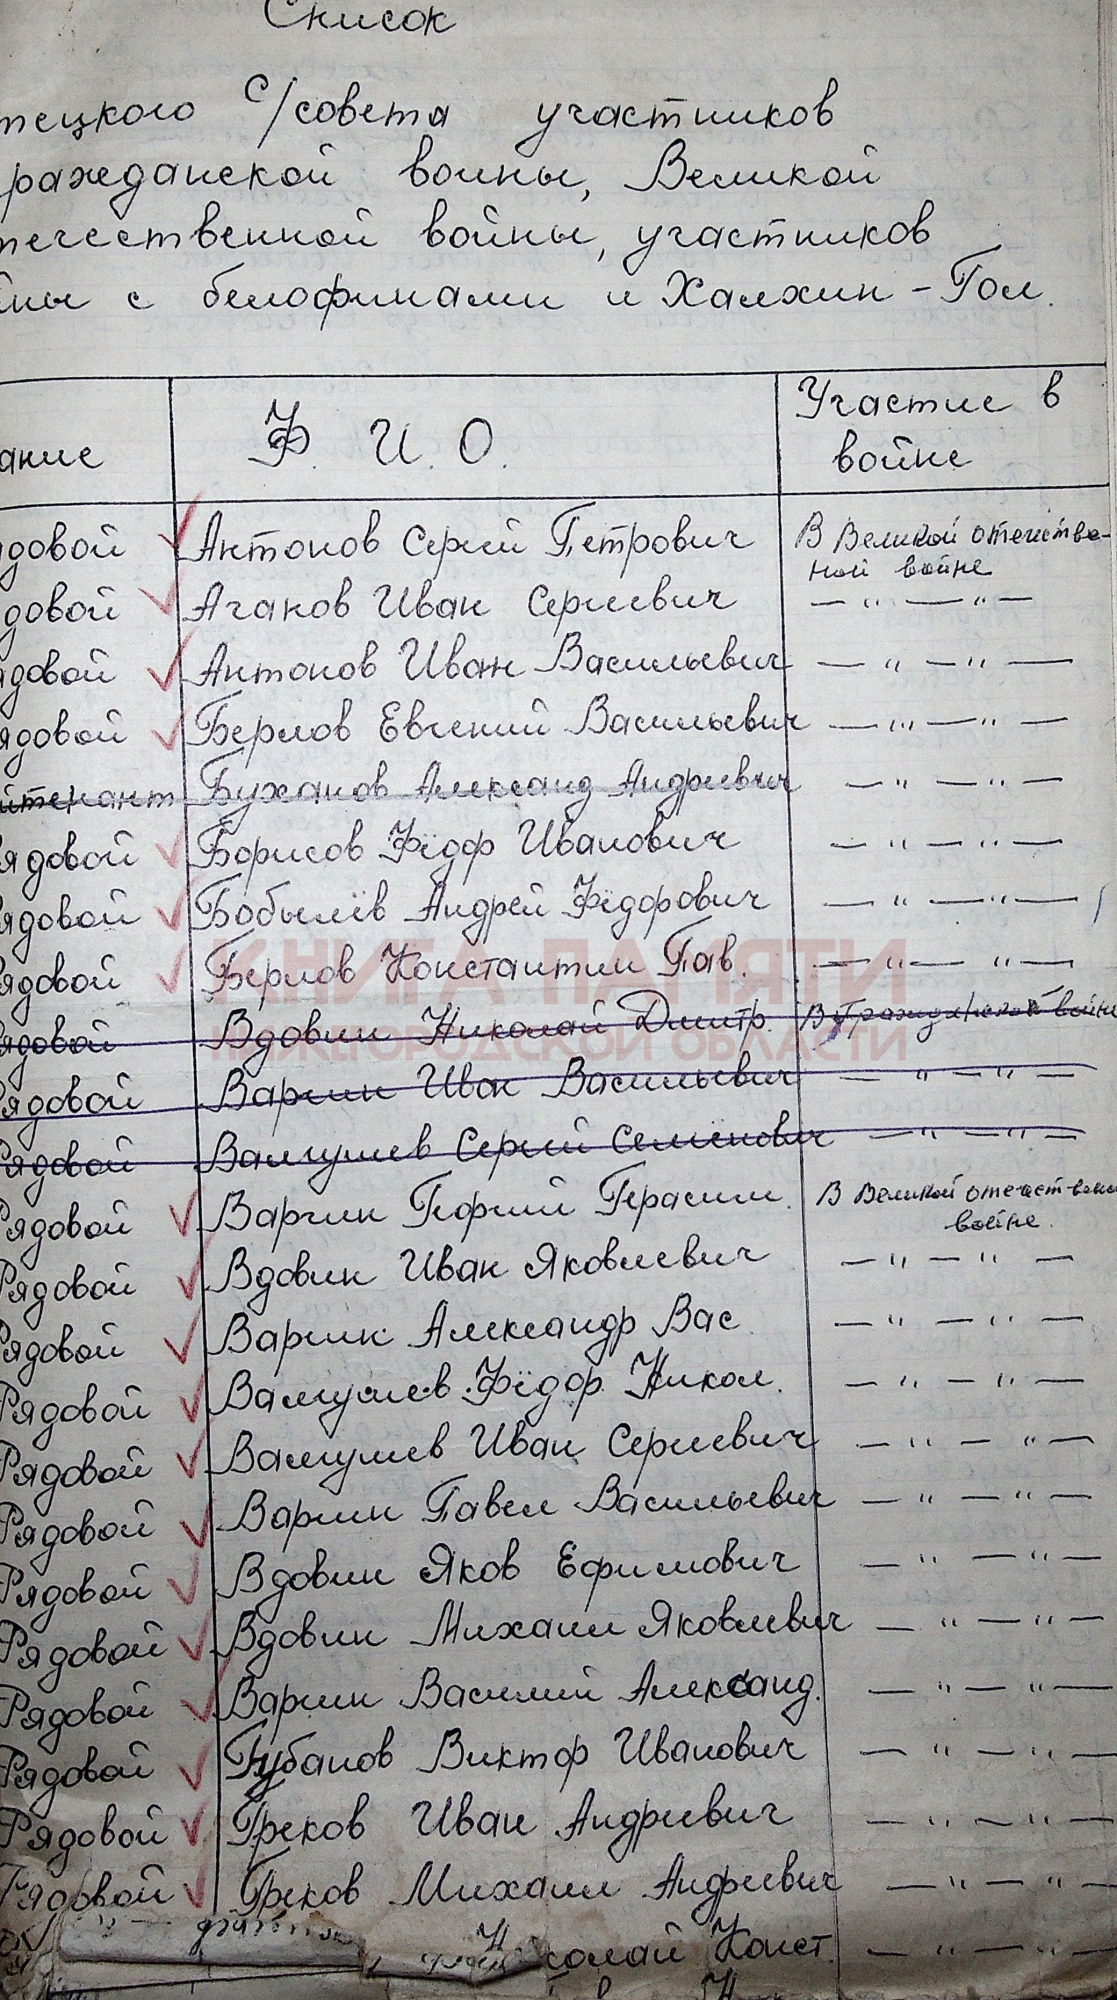 Список
тецкого с/совета участников
ражданской войны, Великой
течественной войны, участников
йны с белофинами и Халхин-Гол.
ание Ф. И. О. Участие в
войне
ядовой Антонов Сергей Петрович В Великой отечествен-
ной войне
ядовой Агапов Иван Сергеевич — " — " —
ядовой Антонов Иван Васильевич — " — " —
ядовой Берлов Евгений Васильевич — " — " —
йтенант Буханов Александ Андреевич — " — " —
ядовой Борисов Фёдор Иванович — " — " —
ядовой Бобылёв Андрей Фёдорович — " — " —
ядовой Берлов Константин Пав. — " — " —
КНИГА ПАМЯТИ
ядовой Вдовин Николай Дмитр. В Гражданской войне
НИЖЕГОРОДСКОЙ ОБЛАСТИ
Рядовой Варгин Иван Васильевич — " — " —
Рядовой Валгушев Сергей Семёнович — " — " —
Рядовой Варгин Георгий Герасим. В Великой отечествен
войне.
Рядовой Вдовин Иван Яковлевич — " — " —
Рядовой Варгин Александр Вас — " — " —
Рядовой Валгушев Фёдор Никол. — " — " —
Рядовой Валгушев Иван Сергеевич — " — " —
Рядовой Варгин Павел Васильевич — " — " —
Рядовой Вдовин Яков Ефимович — " — " —
Рядовой Вдовин Михаил Яковлевич — " — " —
Рядовой Варгин Василий Александ. — " — " —
Рядовой Губанов Виктор Иванович — " — " —
Рядовой Греков Иван Андреевич — " — " —
Рядовой Греков Михаил Андреевич — " — " —
колай Конст. — " — " —